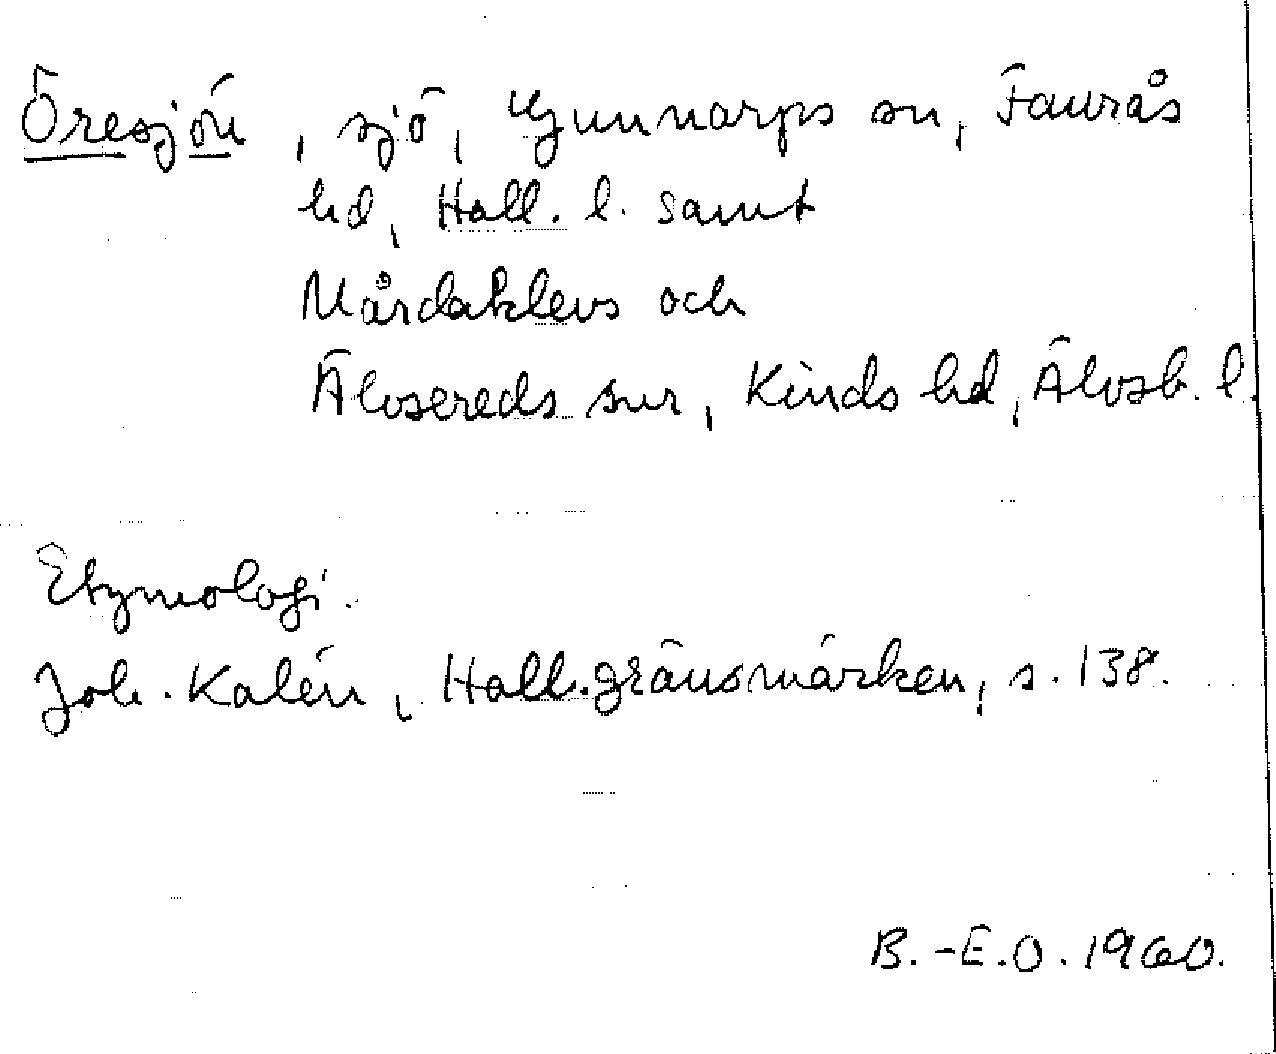 Öresjön, sjö, Gunnarps sn, Faurås
hd, Hall. l. samt
Mårdaklevs och
Älvsereds snr, Kinds hd, Älvsb. l.
Etymologi.
Joh. Kalén, Hall. gränsmärken, s. 138.
B.-E.O. 1960.